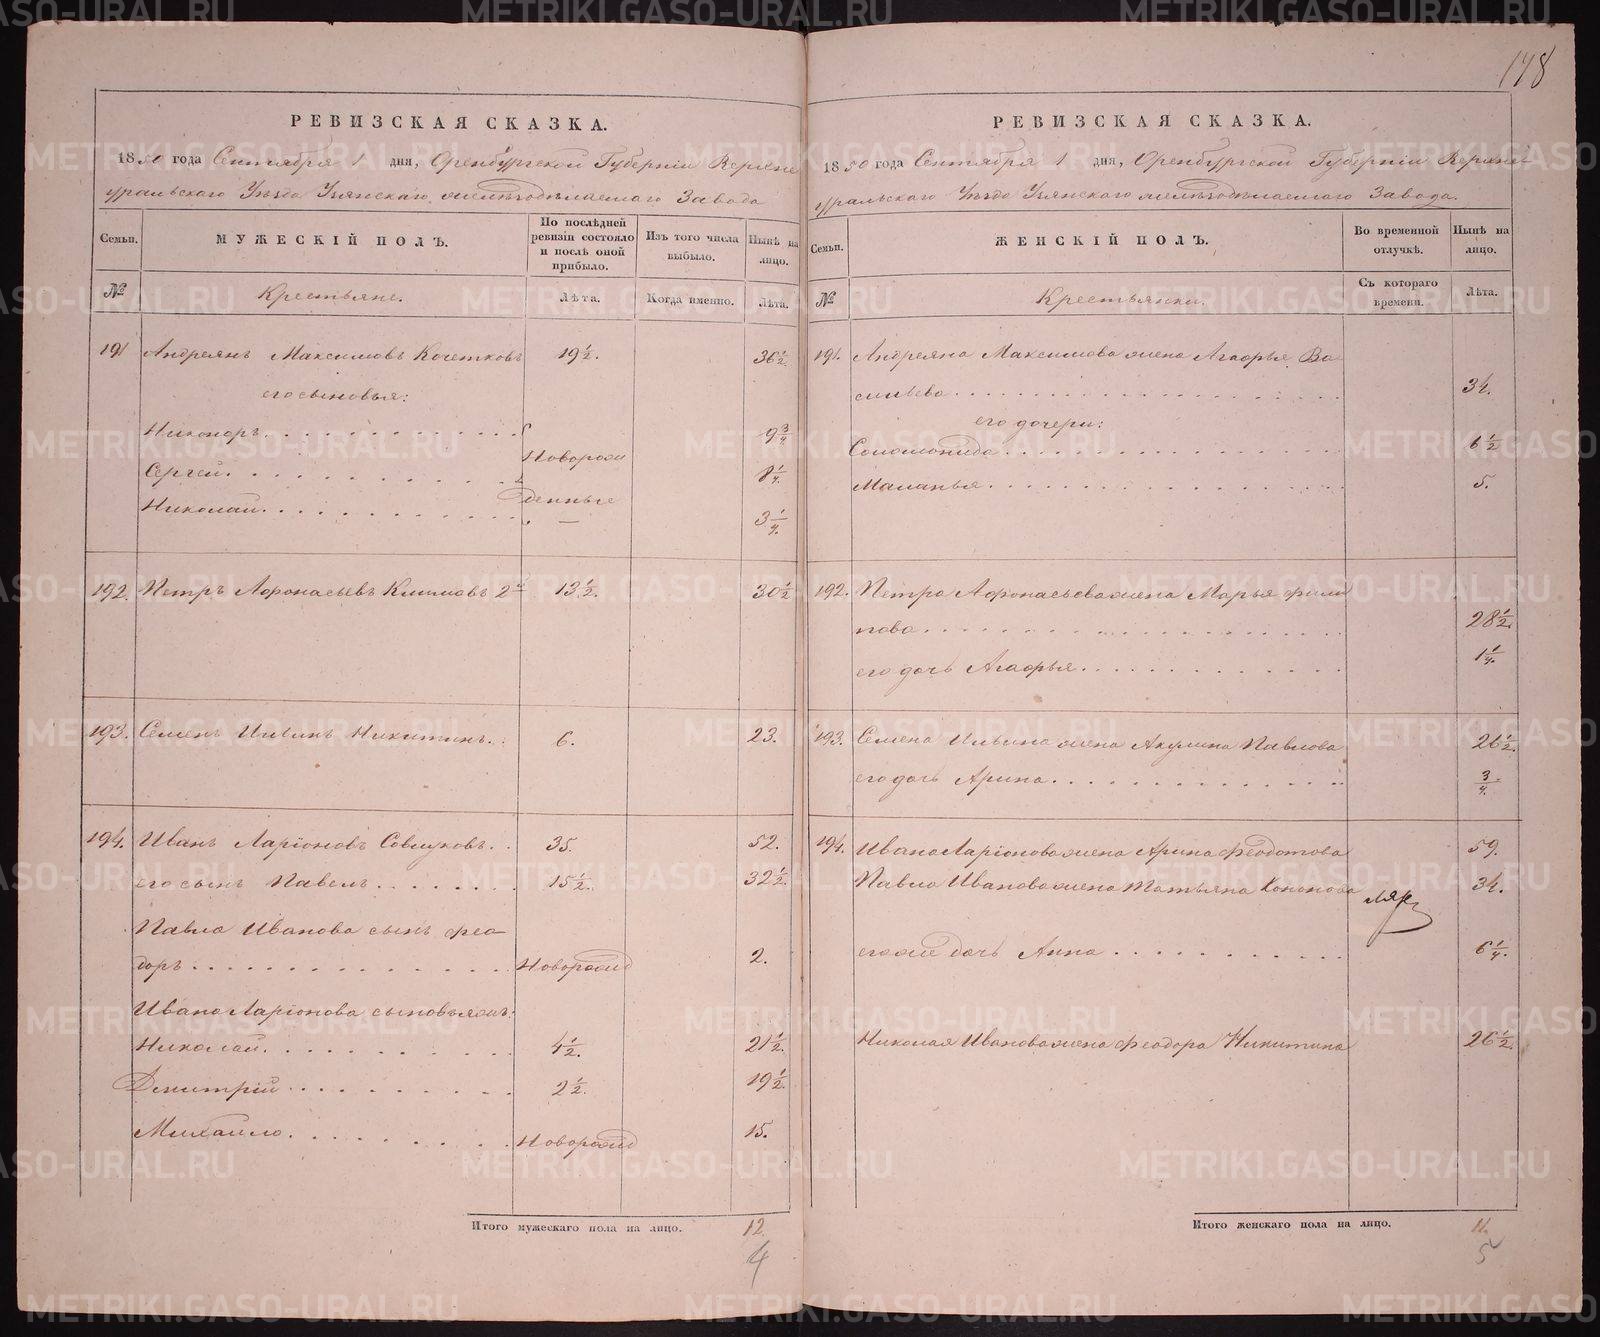 178
РЕВИЗСКАЯ СКАЗКА.
1850 года Сентября 1 дня, Оренбургской Губерніи Верхне
уральскаго Уѣзда Узянскаго желѣзодѣлаемаго Завода
Семьи. МУЖЕСКІЙ ПОЛЪ. По послѣдней ревизіи состояло и послѣ оной прибыло. Изъ того числа выбыло. Нынѣ на лицо.
№ Крестьяне. Лѣта. Когда именно. Лѣта.
191 Андреянъ Максимовъ Кочетковъ 19 1/2. 36 1/2
его сыновья:
Никоноръ. 9 3/4
Новорож
Сергей. 8 1/4.
денные
Николай. 3 1/4.
192. Петръ Афонасьевъ Климовъ 2й 13 1/2. 30 1/2
193. Семенъ Ильинъ Никитинъ. 6. 23.
194. Иванъ Ларіоновъ Савлуковъ. 35. 52.
его сынъ Павелъ. 15 1/2. 32 1/2.
Павла Иванова сынъ Фео-
доръ. Новорожд 2.
Ивана Ларіонова сыновья жъ:
Николай. 4 1/2. 21 1/2.
Дмитрій. 2 1/2. 19 1/2.
Михайло. Новорожд 15.
Итого мужескаго пола на лицо. 12.
4
РЕВИЗСКАЯ СКАЗКА.
1850 года Сентября 1 дня, Оренбургской Губерніи Верхне-
уральскаго Уѣзда Узянскаго желѣзодѣлаемаго Завода.
Семьи. ЖЕНСКІЙ ПОЛЪ. Во временной отлучкѣ. Нынѣ на лицо.
№ Крестьянки. Съ котораго времени. Лѣта.
191. Андреяна Максимова жена Агафья Ва-
сильева. 34.
его дочери:
Соломонида. 6 1/2
Маланья. 5.
192. Петра Афонасьева жена Марья Фили
пова. 28 1/2.
его дочь Агафья. 1 1/4.
193. Семена Ильина жена Акулина Павлова 26 1/2.
его дочь Арина. 3/4.
194. Ивана Ларіонова жена Арина Феодотова 59.
Павла Иванова жена Татьяна Кононова 34.
его же дочь Анна. 6 1/4.
Николая Иванова жена Феодора Никитина 26 1/2.
Итого женскаго пола на лицо. 11.
5
METRIKI.GASO-URAL.RU